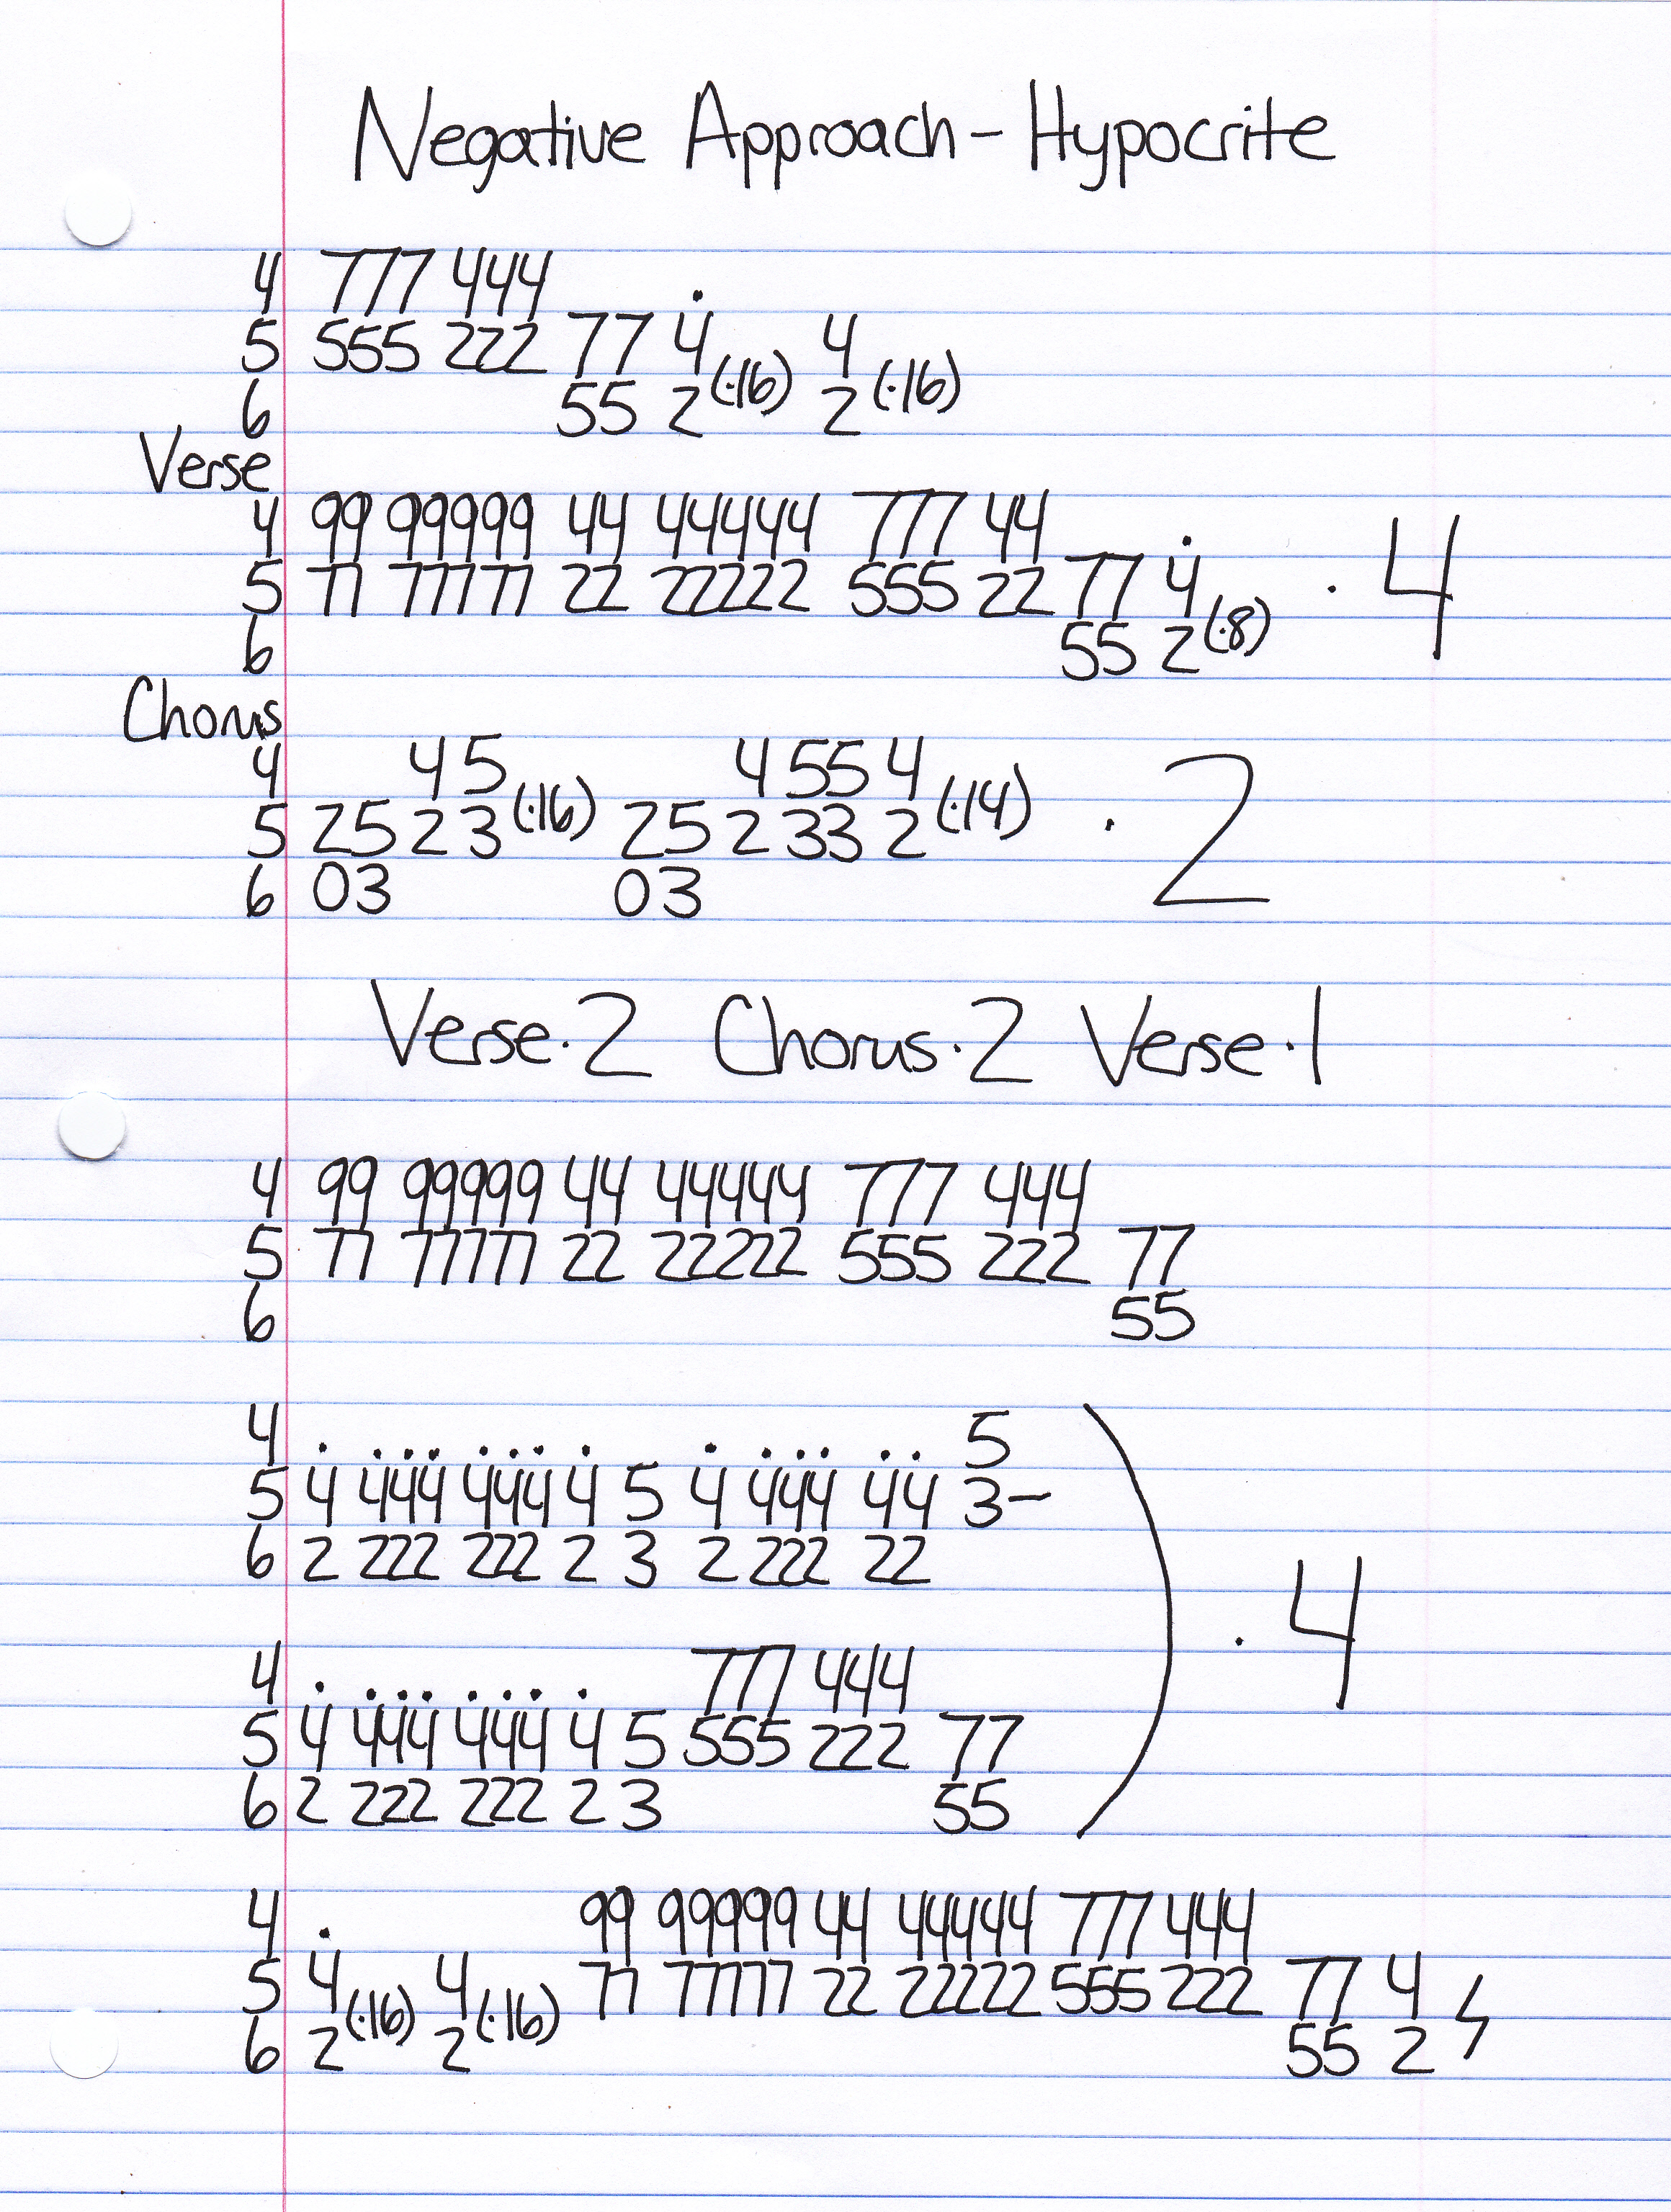 Negative Approach - Hypocrite
4 777 444
5 555 222 77 4̇ (·16) 4 (·16)
6 55 2 2
Verse
4 99 99999 44 44444 777 44
5 77 77777 22 22222 555 22 77 4̇ (·8) · 4
6 55 2
Chorus
4 4 5 4 55 4
5 25 2 3 (·16) 25 2 33 2 (·14) · 2
6 03 03
Verse·2 Chorus·2 Verse·1
4 99 99999 44 44444 777 444
5 77 77777 22 22222 555 222 77
6 55
4 5
5 4̇ 4̇4̇4̇ 4̇4̇4̇ 4̇ 5 4̇ 4̇4̇4̇ 4̇4̇ 3-
6 2 222 222 2 3 2 222 22
) · 4
4 777 444
5 4̇ 4̇4̇4̇ 4̇4̇4̇ 4̇ 5 555 222 77
6 2 222 222 2 3 55
4 99 99999 44 44444 777 444
5 4̇ (·16) 4 (·16) 77 77777 22 22222 555 222 77 4
6 2 2 55 2